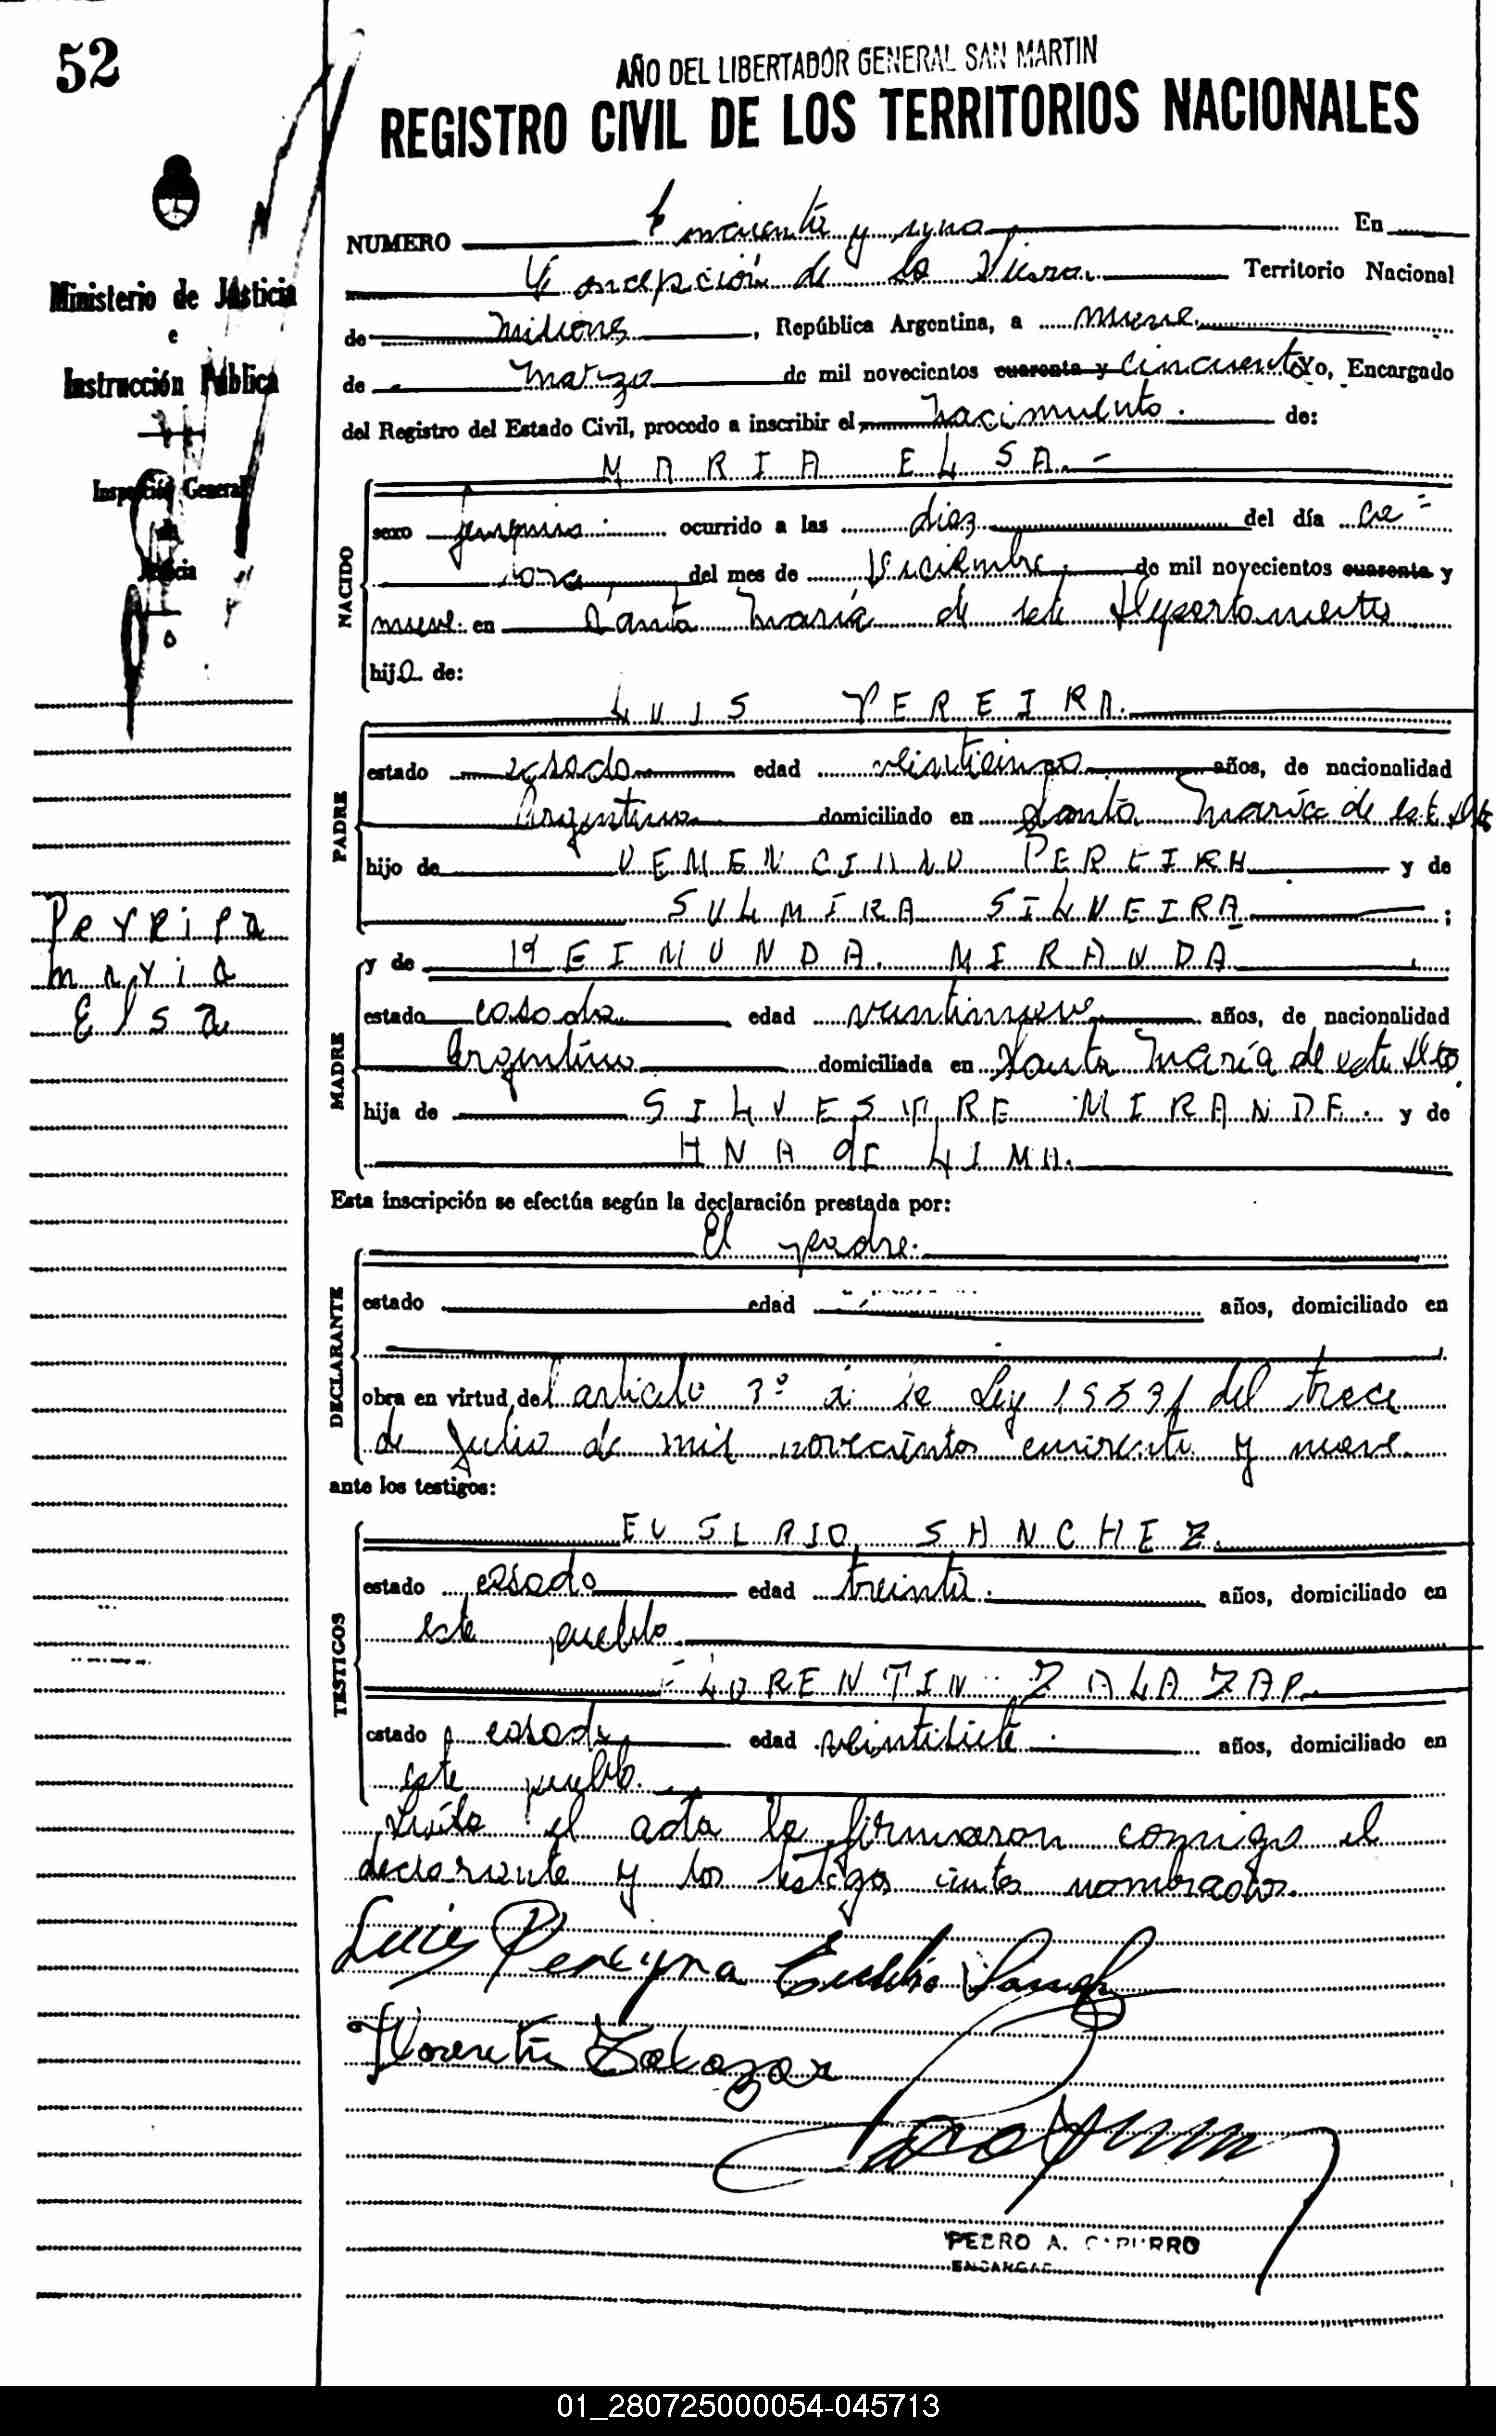 52
AÑO DEL LIBERTADOR GENERAL SAN MARTIN
REGISTRO CIVIL DE LOS TERRITORIOS NACIONALES
Ministerio de Justicia
e
Instrucción Pública
Inspección General
de
Justicia
NUMERO Cincuenta y uno En
Concepción de la Sierra. Territorio Nacional
de Misiones, República Argentina, a nueve
de Marzo de mil novecientos cuarenta y cincuenta Yo, Encargado
del Registro del Estado Civil, procedo a inscribir el nacimiento. de:
MARIA ELSA.-
NACIDO
sexo femenino ocurrido a las diez del día ca=
torce del mes de Diciembre de mil novecientos cuarenta y
nueve en Santa María de este Departamento
hija de:
LUIS PEREIRA.
PADRE
estado casado edad veinticinco años, de nacionalidad
Argentino domiciliado en Santa María de este Dto
hijo de PEREIRA y de
SULMIRA SILVEIRA ;
Pereira
Maria
Elsa
y de REIMUNDA MIRANDA
MADRE
estado casada edad veintinueve años, de nacionalidad
Argentina domiciliada en Santa María de este Dto.
hija de SILVESTRE MIRANDA. y de
ANA de LIMA.
Esta inscripción se efectúa según la declaración prestada por:
El padre.
DECLARANTE
estado edad años, domiciliado en
obra en virtud del articulo 3º de la Ley 13531 del trece
de Julio de mil novecientos cuarenta y nueve
ante los testigos:
EUSEBIO SANCHEZ.
TESTIGOS
estado casado edad treinta. años, domiciliado en
este pueblo
FLORENTIN ZALAZAR
estado casado edad veintisiete años, domiciliado en
este pueblo.
Leída el acta la firmaron conmigo el
declarante y los testigos antes nombrados.
Luis Pereyra Eusebio Sanchez
Florentin Zalazar
PEDRO A. CAPURRO
ENCARGADO
01_280725000054-045713